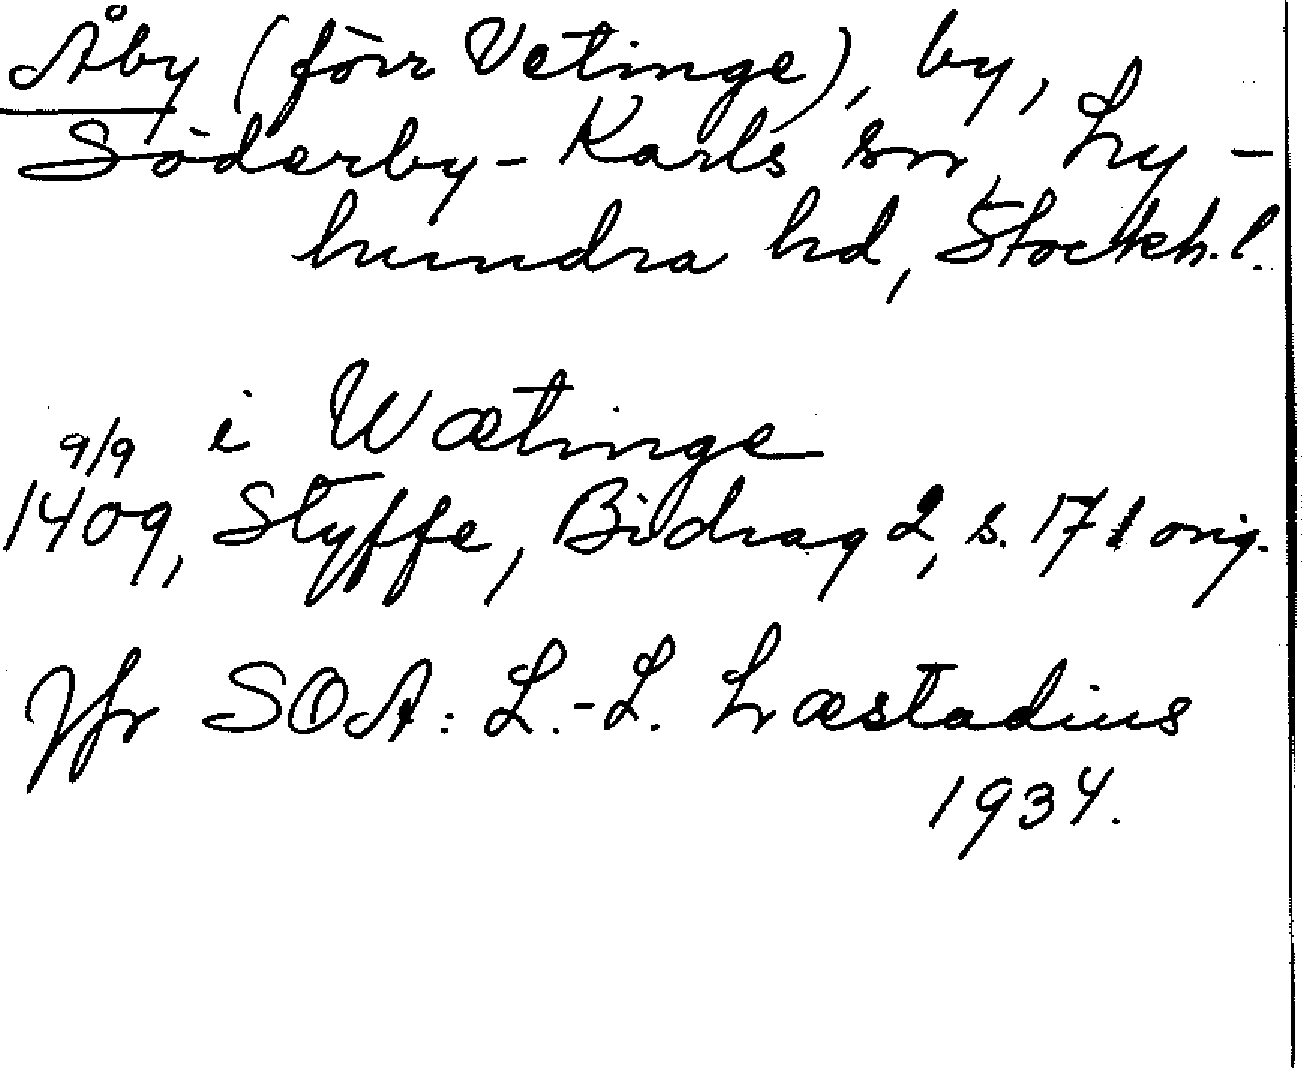 Åby (förr Vetinge), by,
Söderby-Karls sn, Ly-
hundra hd, Stockh. l.
i Wætinge
9/9
1409, Styffe, Bidrag 2, s. 171 orig.
Jfr SOA: L.-L. Læstadius
1934.